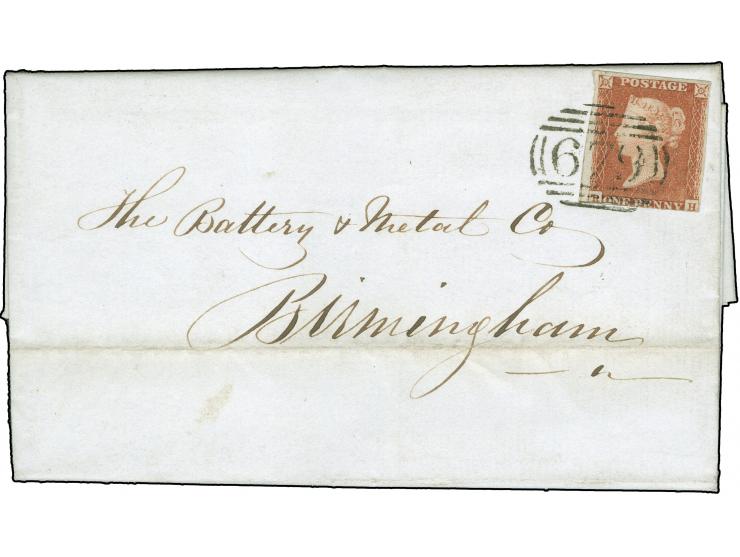 POSTAGE
679
R ONE PENNY H
The Battery & Metal Co
Birmingham